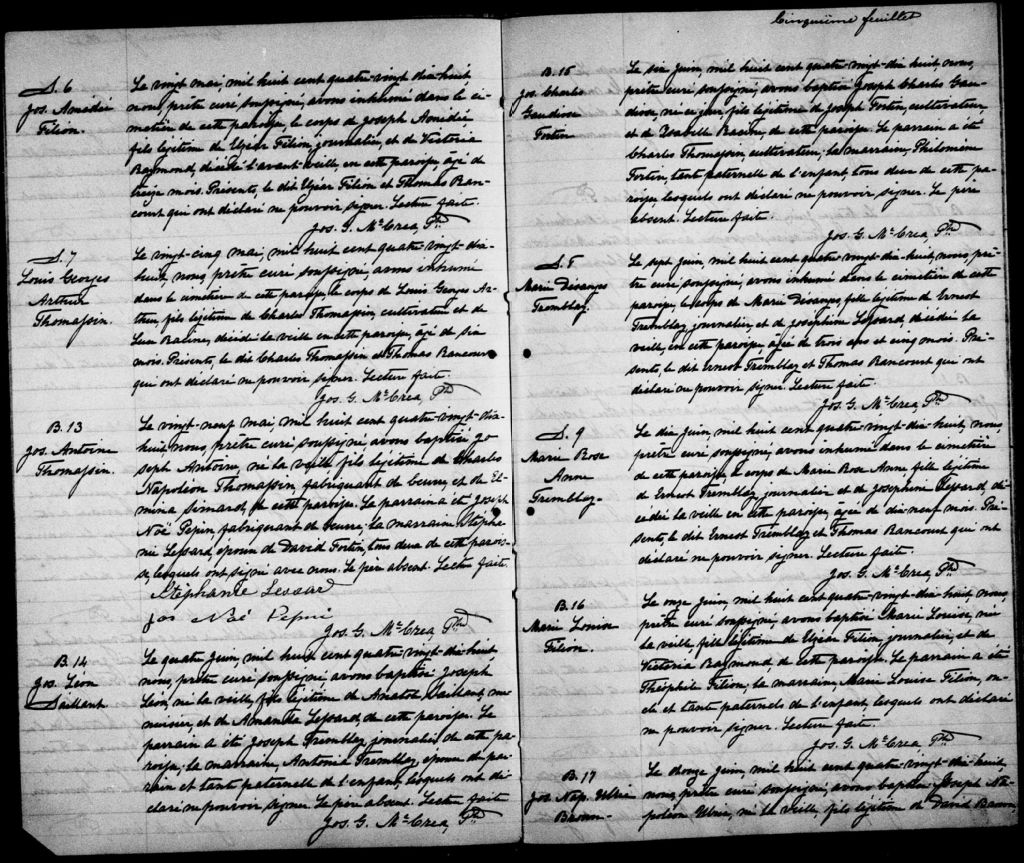 S. 6
Jos. Amédée
Filion.
Le vingt mai, mil huit cent quatre-vingt-dix-huit,
nous, prêtre curé soussigné, avons inhumé dans le ci-
metière de cette paroisse, le corps de Joseph Amédée
fils légitime de Elzéar Filion, journalier, et de Victoria
Raymond, décédé l'avant-veille, en cette paroisse âgé de
treize mois. Présents, le dit Elzéar Filion et Thomas Ran-
court qui ont déclaré ne pouvoir signer. Lecture faite.
Jos. G. McCrea, Ptre
S. 7
Louis Georges
Arthur
Thomassin.
Le vingt-cinq mai, mil huit cent quatre-vingt-dix-
huit, nous, prêtre curé soussigné avons inhumé
dans le cimetière de cette paroisse, le corps de Louis Georges Ar-
thur fils légitime de Charles Thomassin, cultivateur et de
Racine, décédé la veille en cette paroisse âgé de six
mois. Présents, le dit Charles Thomassin et Thomas Rancourt
qui ont déclaré ne pouvoir signer. Lecture faite.
Jos. G. McCrea, Ptre
B. 13
Jos. Antoine
Thomassin.
Le vingt-neuf mai, mil huit cent quatre-vingt-dix-
huit, nous, prêtre curé soussigné avons baptisé Jo
seph Antoine, né la veille, fils légitime de Charles
Napoléon Thomassin, fabriquant de beurre, et de El-
mina Simard, de cette paroisse. Le parrain a été Joseph
Noë Pepin, fabriquant de beurre, la marraine Stépha-
nie Lessard, épouse de David Fortin, tous deux de cette parois-
se, lesquels ont signé avec nous. Le père absent. Lecture faite.
Stéphanie Lessard
Jos Noé Pepin
Jos. G. McCrea, Ptre
B. 14
Jos. Léon
Vaillant.
Le quatre juin, mil huit cent quatre-vingt-dix-huit
nous, prêtre curé soussigné avons baptisé Joseph
Léon, né la veille, fils légitime de Anatole Vaillant, me-
nuisier, et de Amanda Lessard, de cette paroisse. Le
parrain a été Joseph Tremblay journalier de cette pa-
roisse, la marraine, Antonia Tremblay, épouse du par-
rain et tante paternelle de l'enfant, lesquels ont dé-
claré ne pouvoir signer. Le père absent. Lecture faite
Jos. G. McCrea, Ptre
Cinquième feuillet
B. 15
Jos. Charles
Gaudiose
Fortin
Le six juin, mil huit cent quatre-vingt-dix-huit, nous,
prêtre curé soussigné, avons baptisé Joseph Charles Gau-
diose, né ce jour, fils légitime de Joseph Fortin, cultivateur,
et de Isabelle Bassin, de cette paroisse. Le parrain a été
Charles Thomassin, cultivateur, la marraine, Philomène
Fortin, tante paternelle de l'enfant, tous deux de cette pa-
roisse, lesquels ont déclaré ne pouvoir signer. Le père
absent. Lecture faite.
Jos. G. McCrea, Ptre
S. 8
Marie Désanges
Tremblay.
Le sept juin, mil huit cent quatre-vingt-dix-huit, nous, prê-
tre curé, soussigné, avons inhumé dans le cimetière de cette
paroisse le corps de Marie Désanges, fille légitime de Ernest
Tremblay, journalier, et de Joséphine Lessard, décédée la
veille, en cette paroisse âgée de trois ans et cinq mois. Pré-
sents, le dit Ernest Tremblay et Thomas Rancourt qui ont
déclaré ne pouvoir signer. Lecture faite.
Jos. G. McCrea, Ptre
S. 9
Marie Rose
Anne
Tremblay.
Le dix juin, mil huit cent quatre-vingt-dix-huit, nous,
prêtre curé soussigné, avons inhumé dans le cimetière
de cette paroisse, le corps de Marie Rose Anne fille légitime
de Ernest Tremblay, journalier et de Joséphine Lessard, dé-
cédée la veille en cette paroisse, âgée de dix-neuf mois. Pré-
sents, le dit Ernest Tremblay et Thomas Rancourt qui ont
déclaré ne pouvoir signer. Lecture faite.
Jos. G. McCrea, Ptre
B. 16
Marie Louise
Filion.
Le onze juin, mil huit cent quatre-vingt-dix-huit, nous,
prêtre curé soussigné, avons baptisé Marie Louise, née
la veille, fille légitime de Elzéar Filion, journalier, et de
Victoria Raymond de cette paroisse. Le parrain a été
Théophile Filion, la marraine, Marie Louise Filion, on-
cle et tante paternels de l'enfant, lesquels ont déclaré
ne pouvoir signer. Lecture faite.
Jos. G. McCrea, Ptre
B. 17
Jos. Nap. Ulric
Le douze juin, mil huit cent quatre-vingt-dix-huit,
nous, prêtre curé soussigné, avons baptisé Joseph Na-
poléon Ulric, né la veille, fils légitime de David